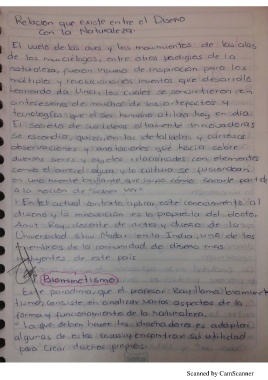 Relación que existe entre el Diseño
con la Naturaleza.
El vuelo de las aves y los movimientos de las alas
de los murciélagos, entre otros prodigios de la
naturaleza, fueron de inspiración para los
múltiples y revolucionarios inventos que desarrolló
Leonardo da Vinci, los cuales se convirtieron en
antecesores de muchos de los artefactos y
tecnologías que el ser humano utiliza hoy en día.
El secreto de sus ideas altamente innovadoras
se escondía, quizá, en las detalladas y
observaciones y anotaciones que hacía sobre
diversos seres y objetos relacionados con elementos
como el el agua y la cultura se fusionaban
en una mente que supo cómo sacarle partido
a la noción de "saber ver"
En el actual contexto aplicar este conocimiento al
diseño y la innovación es la propuesta del doctor
Amit Ray, docente de artes y diseño de la
Universidad Shiv Nadar en la India, uno de los
miembros de la comunidad de diseño más
de este país
Biomimetismo
Este paradigma, que el profesor Ray llama biomime
tismo, consiste en analizar varios aspectos de la
forma y funcionamiento de la naturaleza.
"Lo que deben hacer los diseñadores es adaptar
algunas de estas cosas y encontrar su utilidad
para crear diseños propios
Scanned by CamScanner